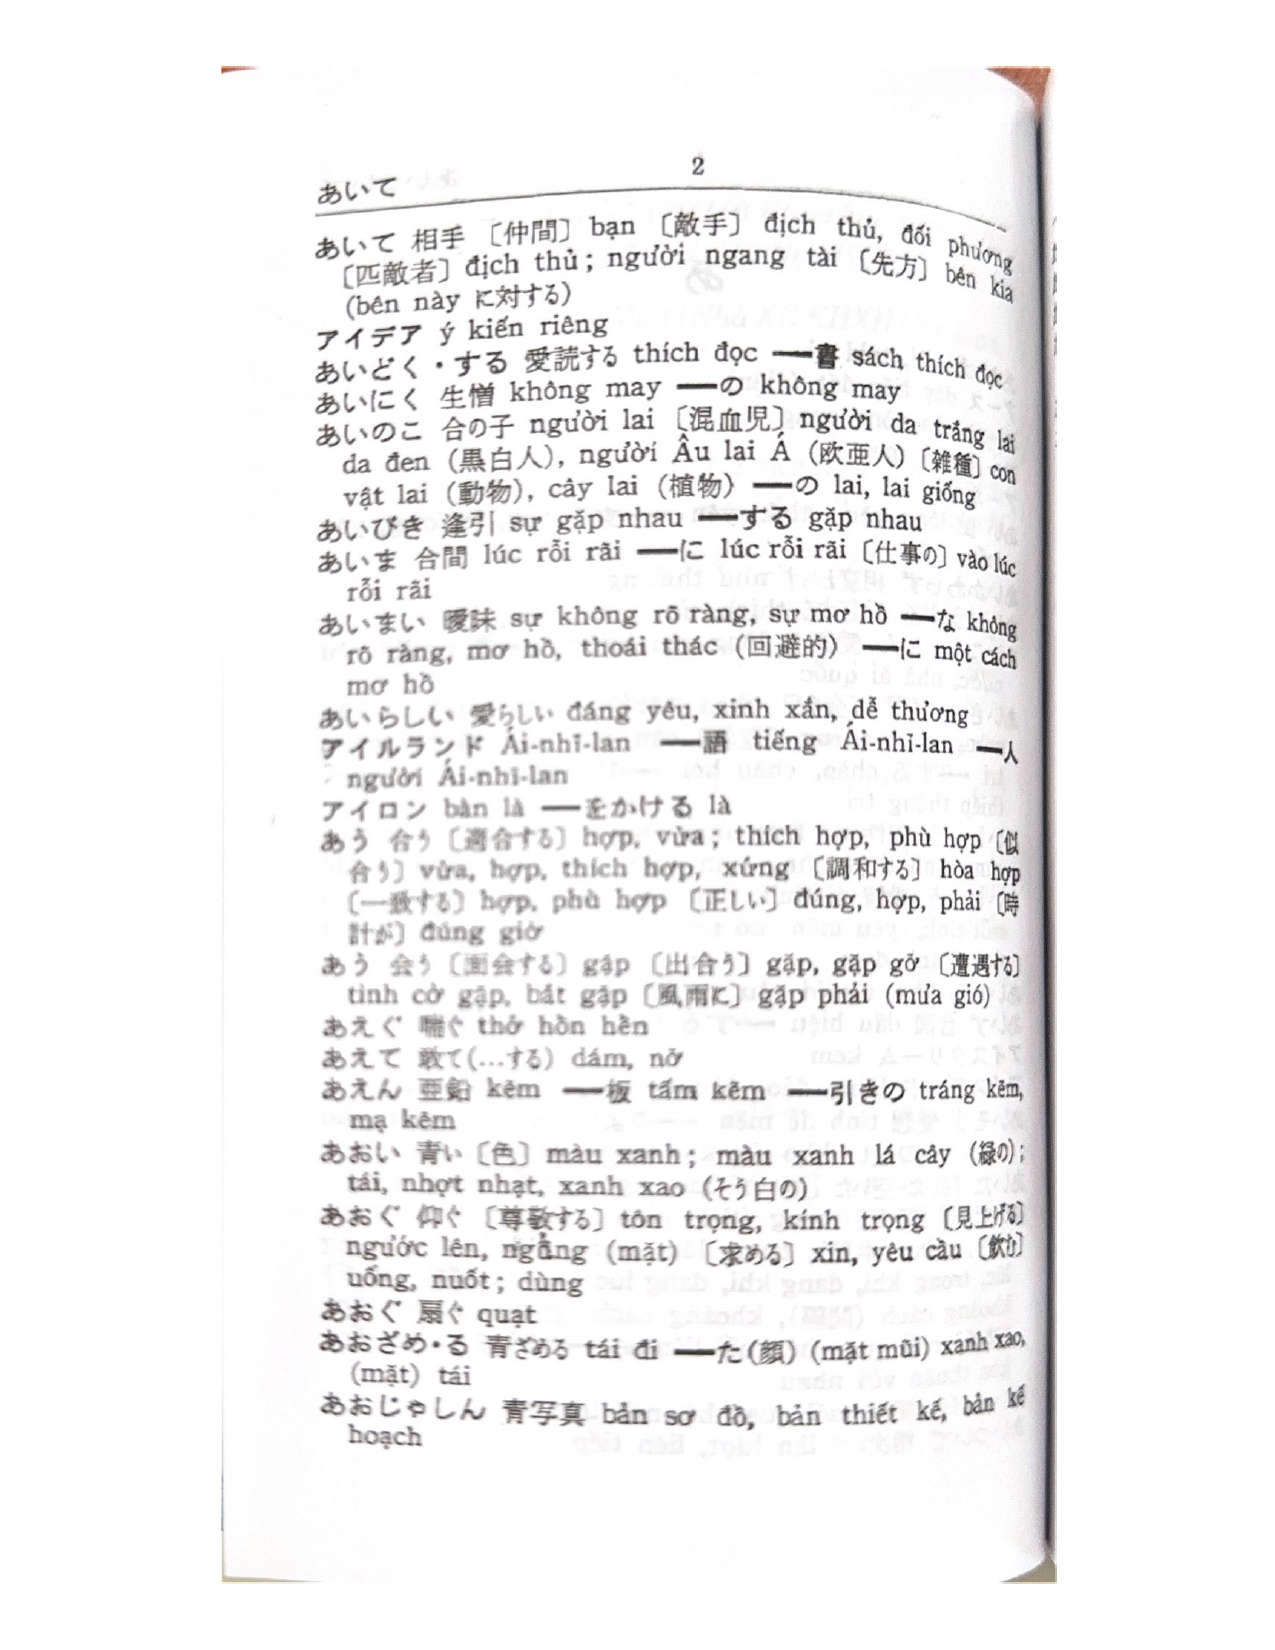 2
あいて
あいて 相手 〔仲間〕 bạn 〔敵手〕 địch thủ, đối phương
〔匹敵者〕 địch thủ ; người ngang tài 〔先方〕 bên kia
(bên này に対する)
アイデア ý kiến riêng
あいどく・する 愛読する thích đọc ━書 sách thích đọc
あいにく 生憎 không may ━の không may
あいのこ 合の子 người lai 〔混血児〕 người da trắng lai
da đen (黒白人), người Âu lai Á (欧亜人) 〔雑種〕 con
vật lai (動物), cây lai (植物) ━の lai, lai giống
あいびき 逢引 sự gặp nhau ━する gặp nhau
あいま 合間 lúc rỗi rãi ━に lúc rỗi rãi 〔仕事の〕 vào lúc
rỗi rãi
あいまい 曖昧 sự không rõ ràng, sự mơ hồ ━な không
rõ ràng, mơ hồ, thoái thác (回避的) ━に một cách
mơ hồ
あいらしい 愛らしい đáng yêu, xinh xắn, dễ thương
アイルランド Ái-nhĩ-lan ━語 tiếng Ái-nhĩ-lan ━人
người Ái-nhĩ-lan
アイロン bàn là ━をかける là
あう 合う 〔適合する〕 hợp, vừa ; thích hợp, phù hợp 〔似
合う〕 vừa, hợp, thích hợp, xứng 〔調和する〕 hòa hợp
〔一致する〕 hợp, phù hợp 〔正しい〕 đúng, hợp, phải 〔時
計が〕 đúng giờ
あう 会う 〔面会する〕 gặp 〔出合う〕 gặp, gặp gỡ 〔遭遇する〕
tình cờ gặp, bắt gặp 〔風雨に〕 gặp phải (mưa gió)
あえぐ 喘ぐ thở hồn hền
あえて 敢て(…する) dám, nỡ
あえん 亜鉛 kẽm ━板 tấm kẽm ━引きの tráng kẽm,
mạ kẽm
あおい 青い 〔色〕 màu xanh ; màu xanh lá cây (緑の) ;
tái, nhợt nhạt, xanh xao (そう白の)
あおぐ 仰ぐ 〔尊敬する〕 tôn trọng, kính trọng 〔見上げる〕
ngước lên, ngẩng (mặt) 〔求める〕 xin, yêu cầu 〔飲む〕
uống, nuốt ; dùng
あおぐ 扇ぐ quạt
あおざめ・る 青ざめる tái đi ━た(顔) (mặt mũi) xanh xao,
(mặt) tái
あおじゃしん 青写真 bản sơ đồ, bản thiết kế, bản kế
hoạch